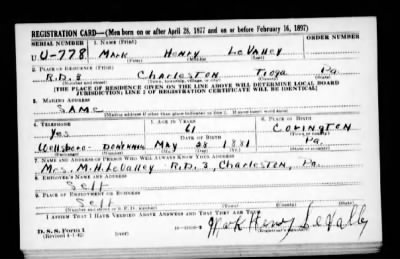 REGISTRATION CARD—(Men born on or after April 28, 1877 and on or before February 16, 1897)
SERIAL NUMBER 1. NAME (Print) ORDER NUMBER
U U-778 MARK HENRY LeVALLEY
(First) (Middle) (Last)
2. PLACE OF RESIDENCE (Print)
R.D.3 CHARLESTON TIOGA Pa.
(Number and street) (Town, township, village, or city) (County) (State)
[THE PLACE OF RESIDENCE GIVEN ON THE LINE ABOVE WILL DETERMINE LOCAL BOARD
JURISDICTION; LINE 2 OF REGISTRATION CERTIFICATE WILL BE IDENTICAL]
3. MAILING ADDRESS
SAME
[Mailing address if other than place indicated on line 2. If same insert word same]
4. TELEPHONE 5. AGE IN YEARS 6. PLACE OF BIRTH
Yes 61 COVINGTON
DATE OF BIRTH
Wellsboro- MAY 28 1881 Pa.
7. NAME AND ADDRESS OF PERSON WHO WILL ALWAYS KNOW YOUR ADDRESS
Mrs. M.H. LeValley R.D.3, Charleston, Pa.
8. EMPLOYER'S NAME AND ADDRESS
Self
9. PLACE OF EMPLOYMENT OR BUSINESS
Self
I AFFIRM THAT I HAVE VERIFIED ABOVE ANSWERS AND THAT THEY ARE TRUE.
D. S. S. Form 1
(Revised 4-1-42) (over) Mark Henry LeValley